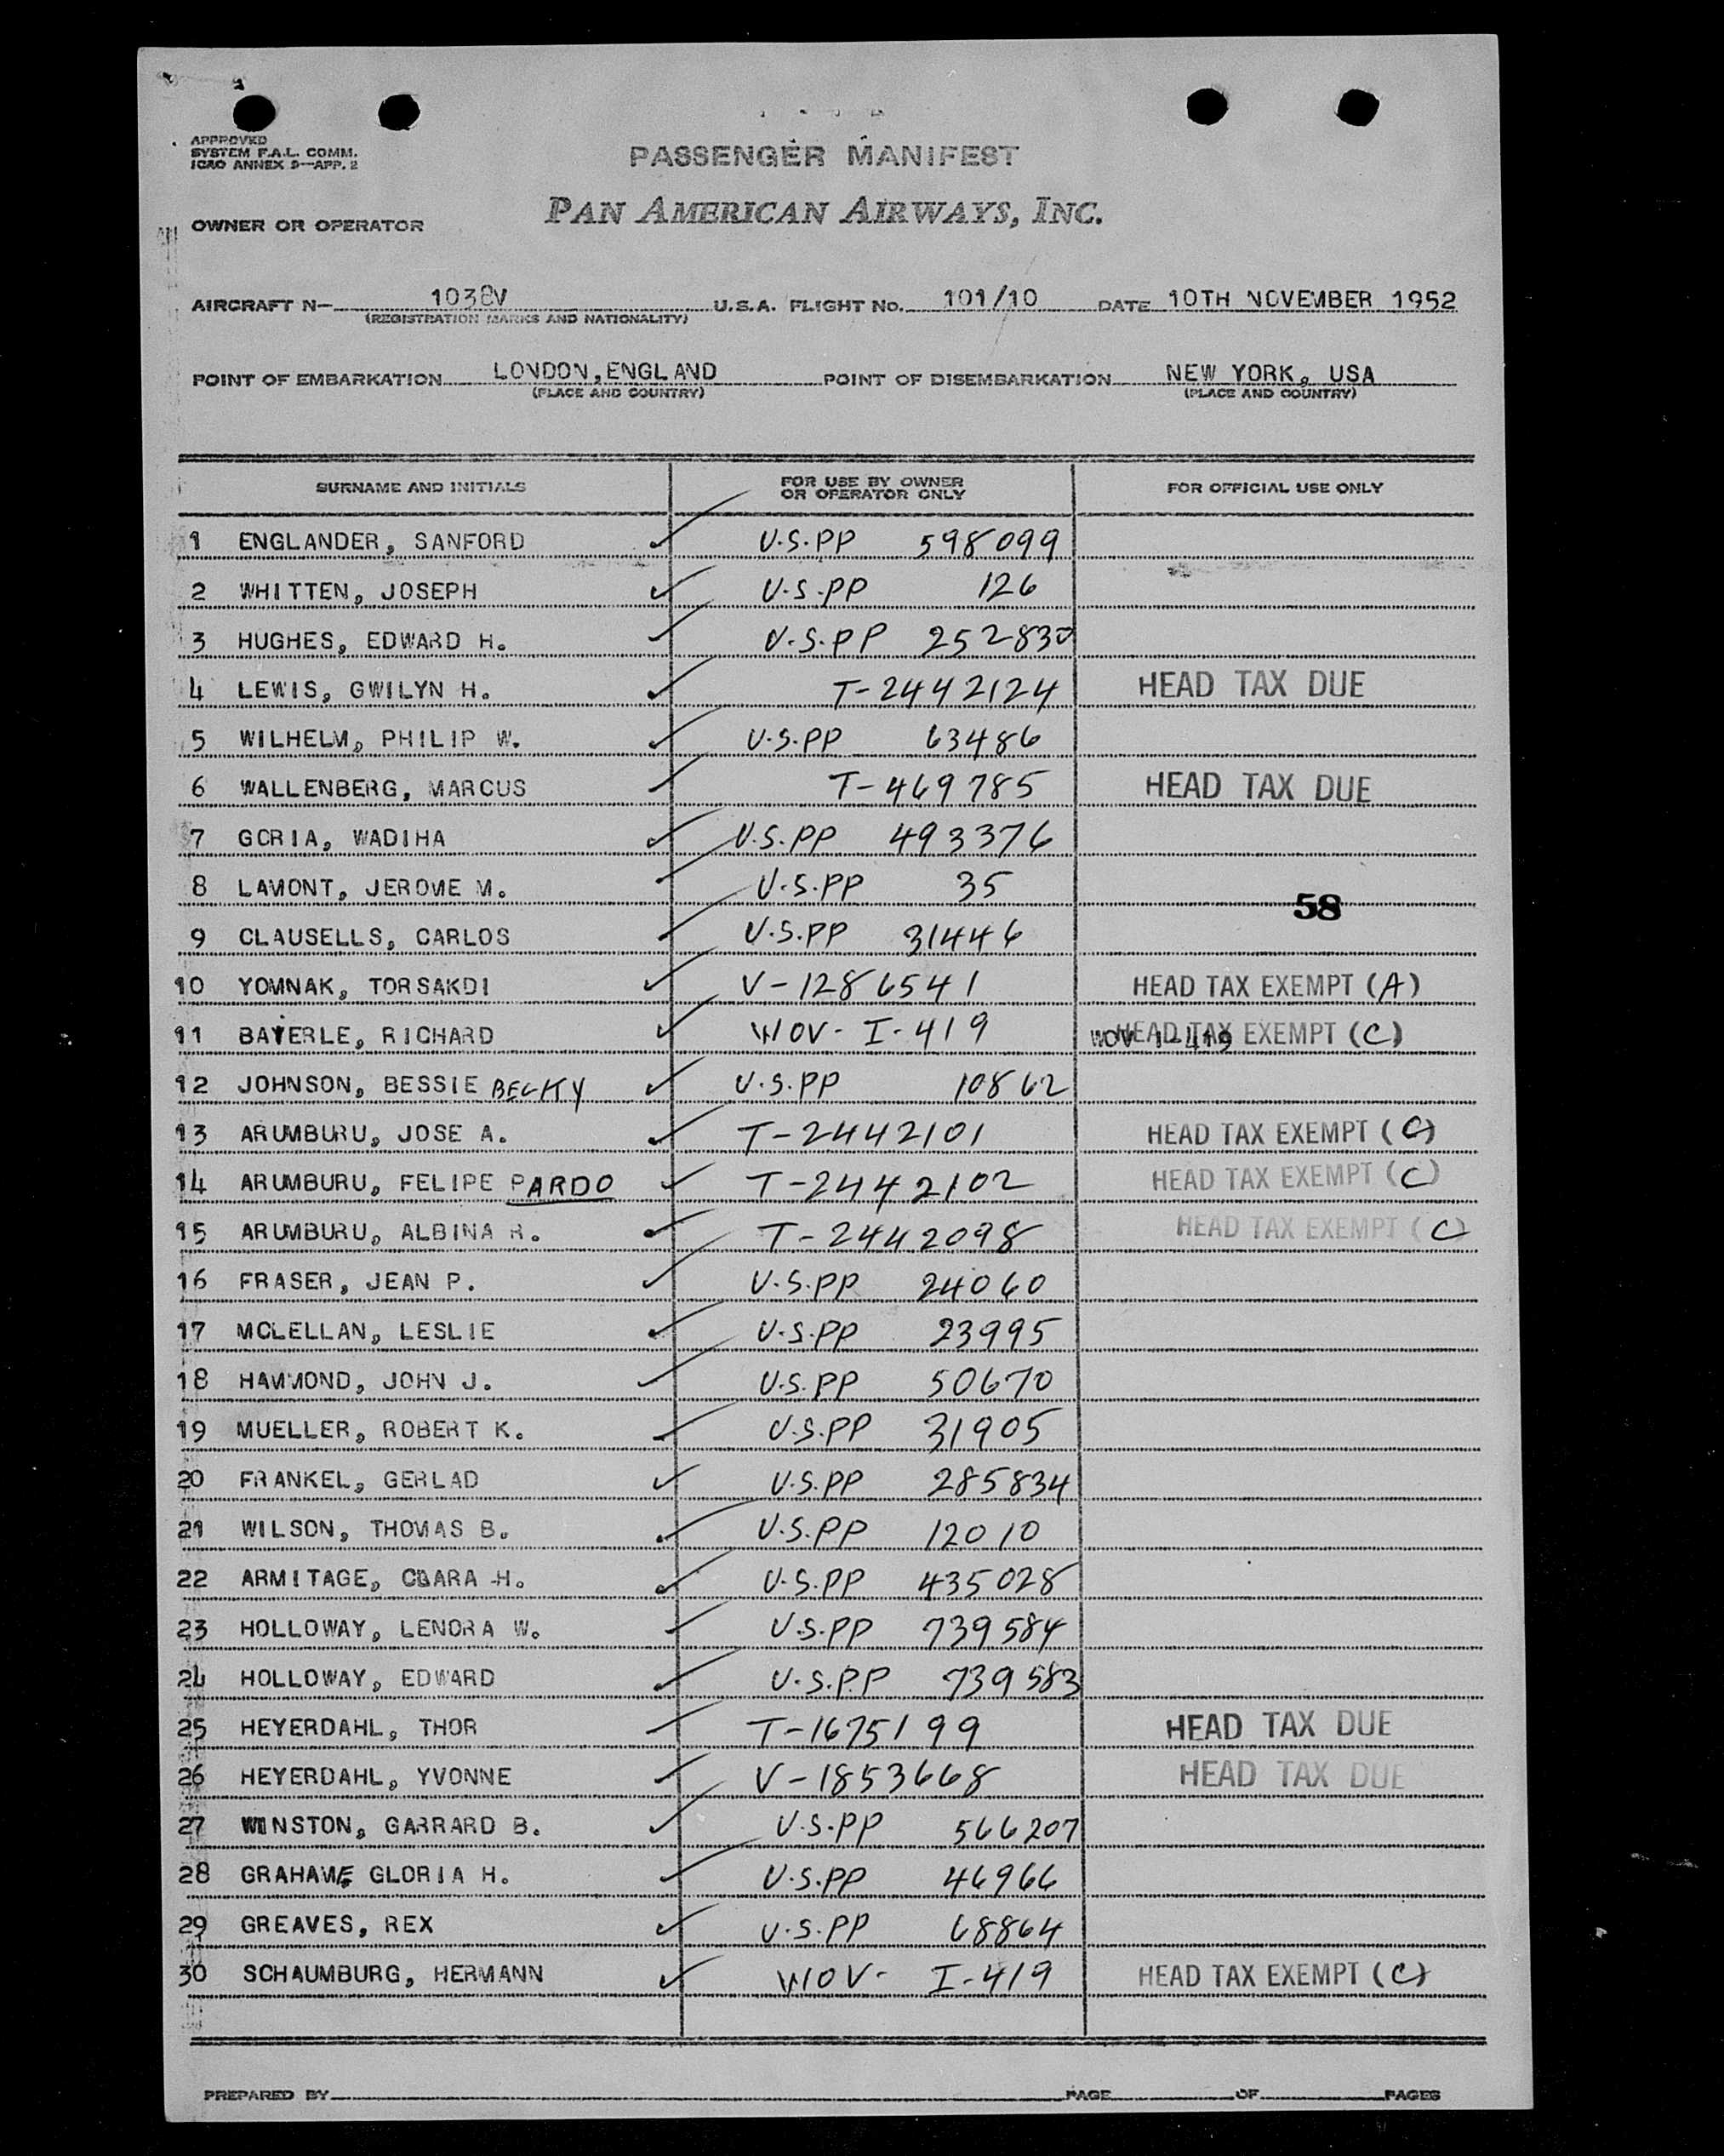 APPROVED
SYSTEM F.A.L. COMM.
ICAO ANNEX 9—APP. 2
PASSENGER MANIFEST
OWNER OR OPERATOR PAN AMERICAN AIRWAYS, INC.
AIRCRAFT N— 1038V U.S.A. FLIGHT No. 101/10 DATE 10TH NOVEMBER 1952
(REGISTRATION MARKS AND NATIONALITY)
POINT OF EMBARKATION LONDON, ENGLAND POINT OF DISEMBARKATION NEW YORK, USA
(PLACE AND COUNTRY) (PLACE AND COUNTRY)
SURNAME AND INITIALS FOR USE BY OWNER OR OPERATOR ONLY FOR OFFICIAL USE ONLY
1 ENGLANDER, SANFORD U.S.PP 598099
2 WHITTEN, JOSEPH U.S.PP 126
3 HUGHES, EDWARD H. U.S.PP 252830
4 LEWIS, GWILYN H. T-2442124 HEAD TAX DUE
5 WILHELM, PHILIP W. U.S.PP 63486
6 WALLENBERG, MARCUS T-469785 HEAD TAX DUE
7 GORIA, WADIHA U.S.PP 493376
8 LAMONT, JEROME M. U.S.PP 35
58
9 CLAUSELLS, CARLOS U.S.PP 31446
10 YOMNAK, TORSAKDI V-1286541 HEAD TAX EXEMPT (A)
11 BAYERLE, RICHARD WOV- I-419 WOV I-419 HEAD TAX EXEMPT (C)
12 JOHNSON, BESSIE BECKY U.S.PP 10862
13 ARUMBURU, JOSE A. T-2442101 HEAD TAX EXEMPT (C)
14 ARUMBURU, FELIPE PARDO T-2442102 HEAD TAX EXEMPT (C)
15 ARUMBURU, ALBINA R. T-2442098 HEAD TAX EXEMPT (C)
16 FRASER, JEAN P. U.S.PP 24060
17 MCLELLAN, LESLIE U.S.PP 23995
18 HAMMOND, JOHN J. U.S.PP 50670
19 MUELLER, ROBERT K. U.S.PP 31905
20 FRANKEL, GERLAD U.S.PP 285834
21 WILSON, THOMAS B. U.S.PP 12010
22 ARMITAGE, CLARA H. U.S.PP 435028
23 HOLLOWAY, LENORA W. U.S.PP 739584
24 HOLLOWAY, EDWARD U.S.PP 739583
25 HEYERDAHL, THOR T-1675199 HEAD TAX DUE
26 HEYERDAHL, YVONNE V-1853668 HEAD TAX DUE
27 WINSTON, GARRARD B. U.S.PP 566207
28 GRAHAME GLORIA H. U.S.PP 46966
29 GREAVES, REX U.S.PP 68864
30 SCHAUMBURG, HERMANN WOV- I-419 HEAD TAX EXEMPT (C)
PREPARED BY PAGE OF PAGES